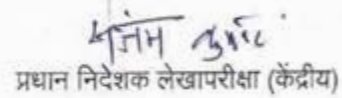 प्रधान निदेशक लेखापरीक्षा (केंद्रीय)